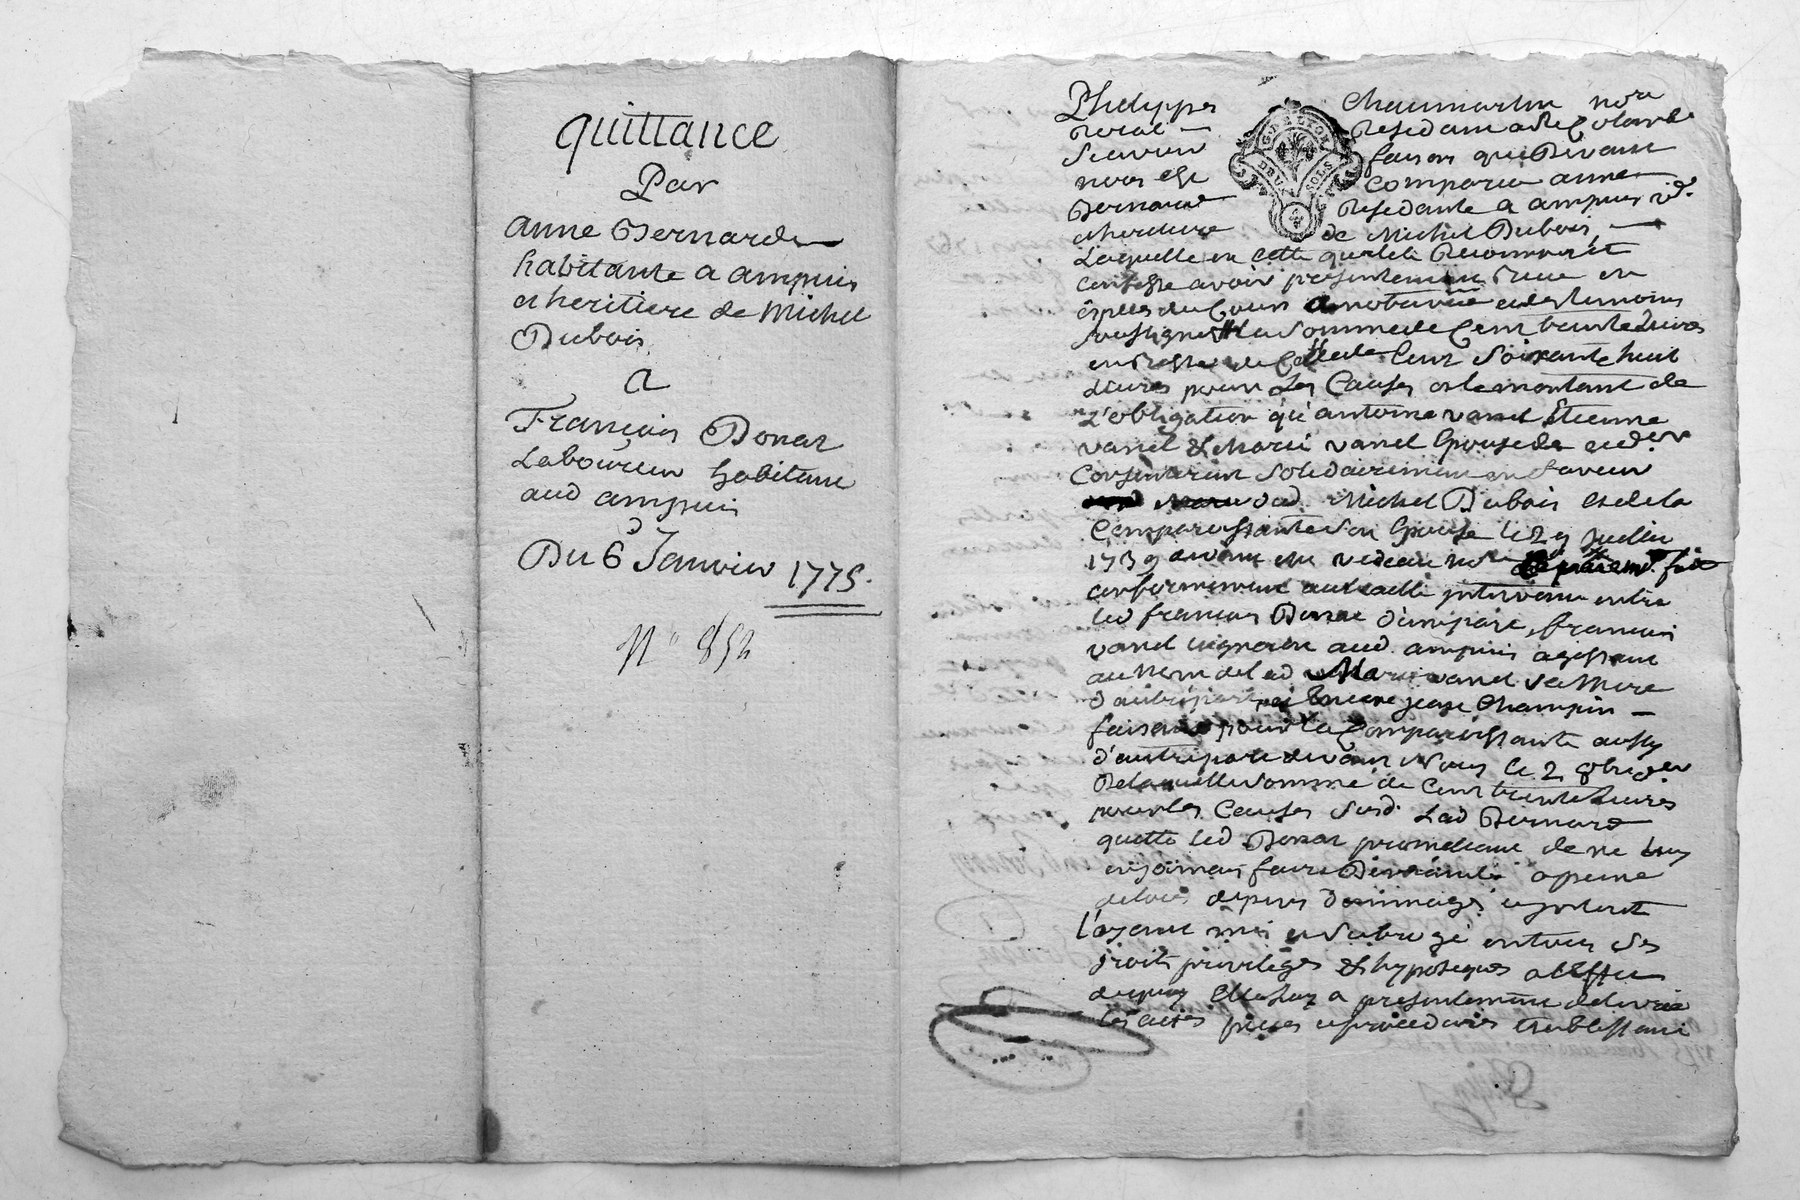 quittance
Par
anne Bernarde
habitante a ampuis
et heritiere de Michel
Dubois
a
François Donat
Laboureur habitant
aud ampuis
Du 6 Janvier 1775.
N° 852
Philippe Chaumartin nore
Roial Residant a Ste Colombe
faison que Devant
nous est comparu anne
Bernard Residante a ampuis
heritiere de Michel Dubois,
Laquelle en cette qualité Reconnoit
confesse avoir presentement Reçu en
espèces du Cours a notre vüe et des temoins
soussignés la Somme de Cent trente Livres
en Reste de Celle de Cent Soixante huit
Livres pour Les Causes et le montant de
L'obligation qu'antoine vanel Etienne
vanel & Marie vanel Epouse de
Consentirent Solidairement en faveur
dud. Michel Dubois et de la
Comparoissante son Epouse le 29 Juillet
1739 devant
conformement au traitté intervenu entre
led françois Donat d'une part, françois
vanel vigneron aud. ampuis agissant
au Nom de lad Marie vanel Sa Mere
d'autre part, et encore jean Champin
faisant pour la Comparoissante aussy
d'autre part devant Nous le 2 8bre der
De laquelle somme de Cent trente Livres
pour les Causes susd. Lad Bernard
quitte led. Donat promettant de ne luy
en jamais faire Demande a peine
de tous depens dommages
L'ayant mis et subrogé en tous ses
droits privileges & hypoteques a L'Effet
dequoy Elle luy a presentement delivré
les actes pieces et procedures etablissant
G. DE LYON
DEUX SOLS